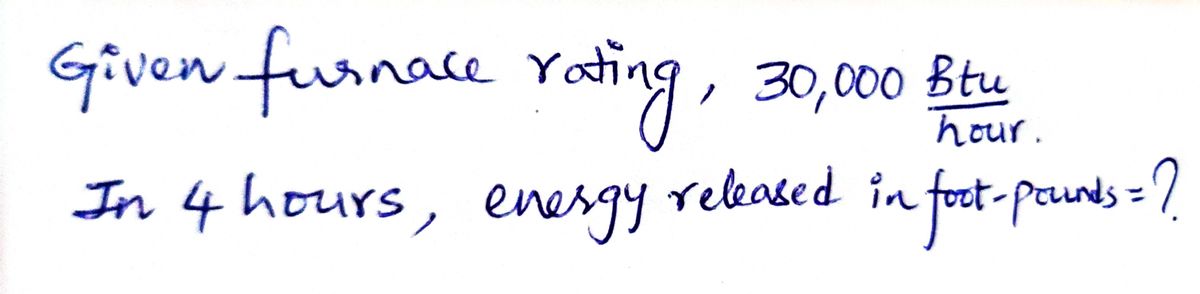 Given furnace rating, 30,000 Btu/hour.
In 4 hours, energy released in foot-pounds = ?